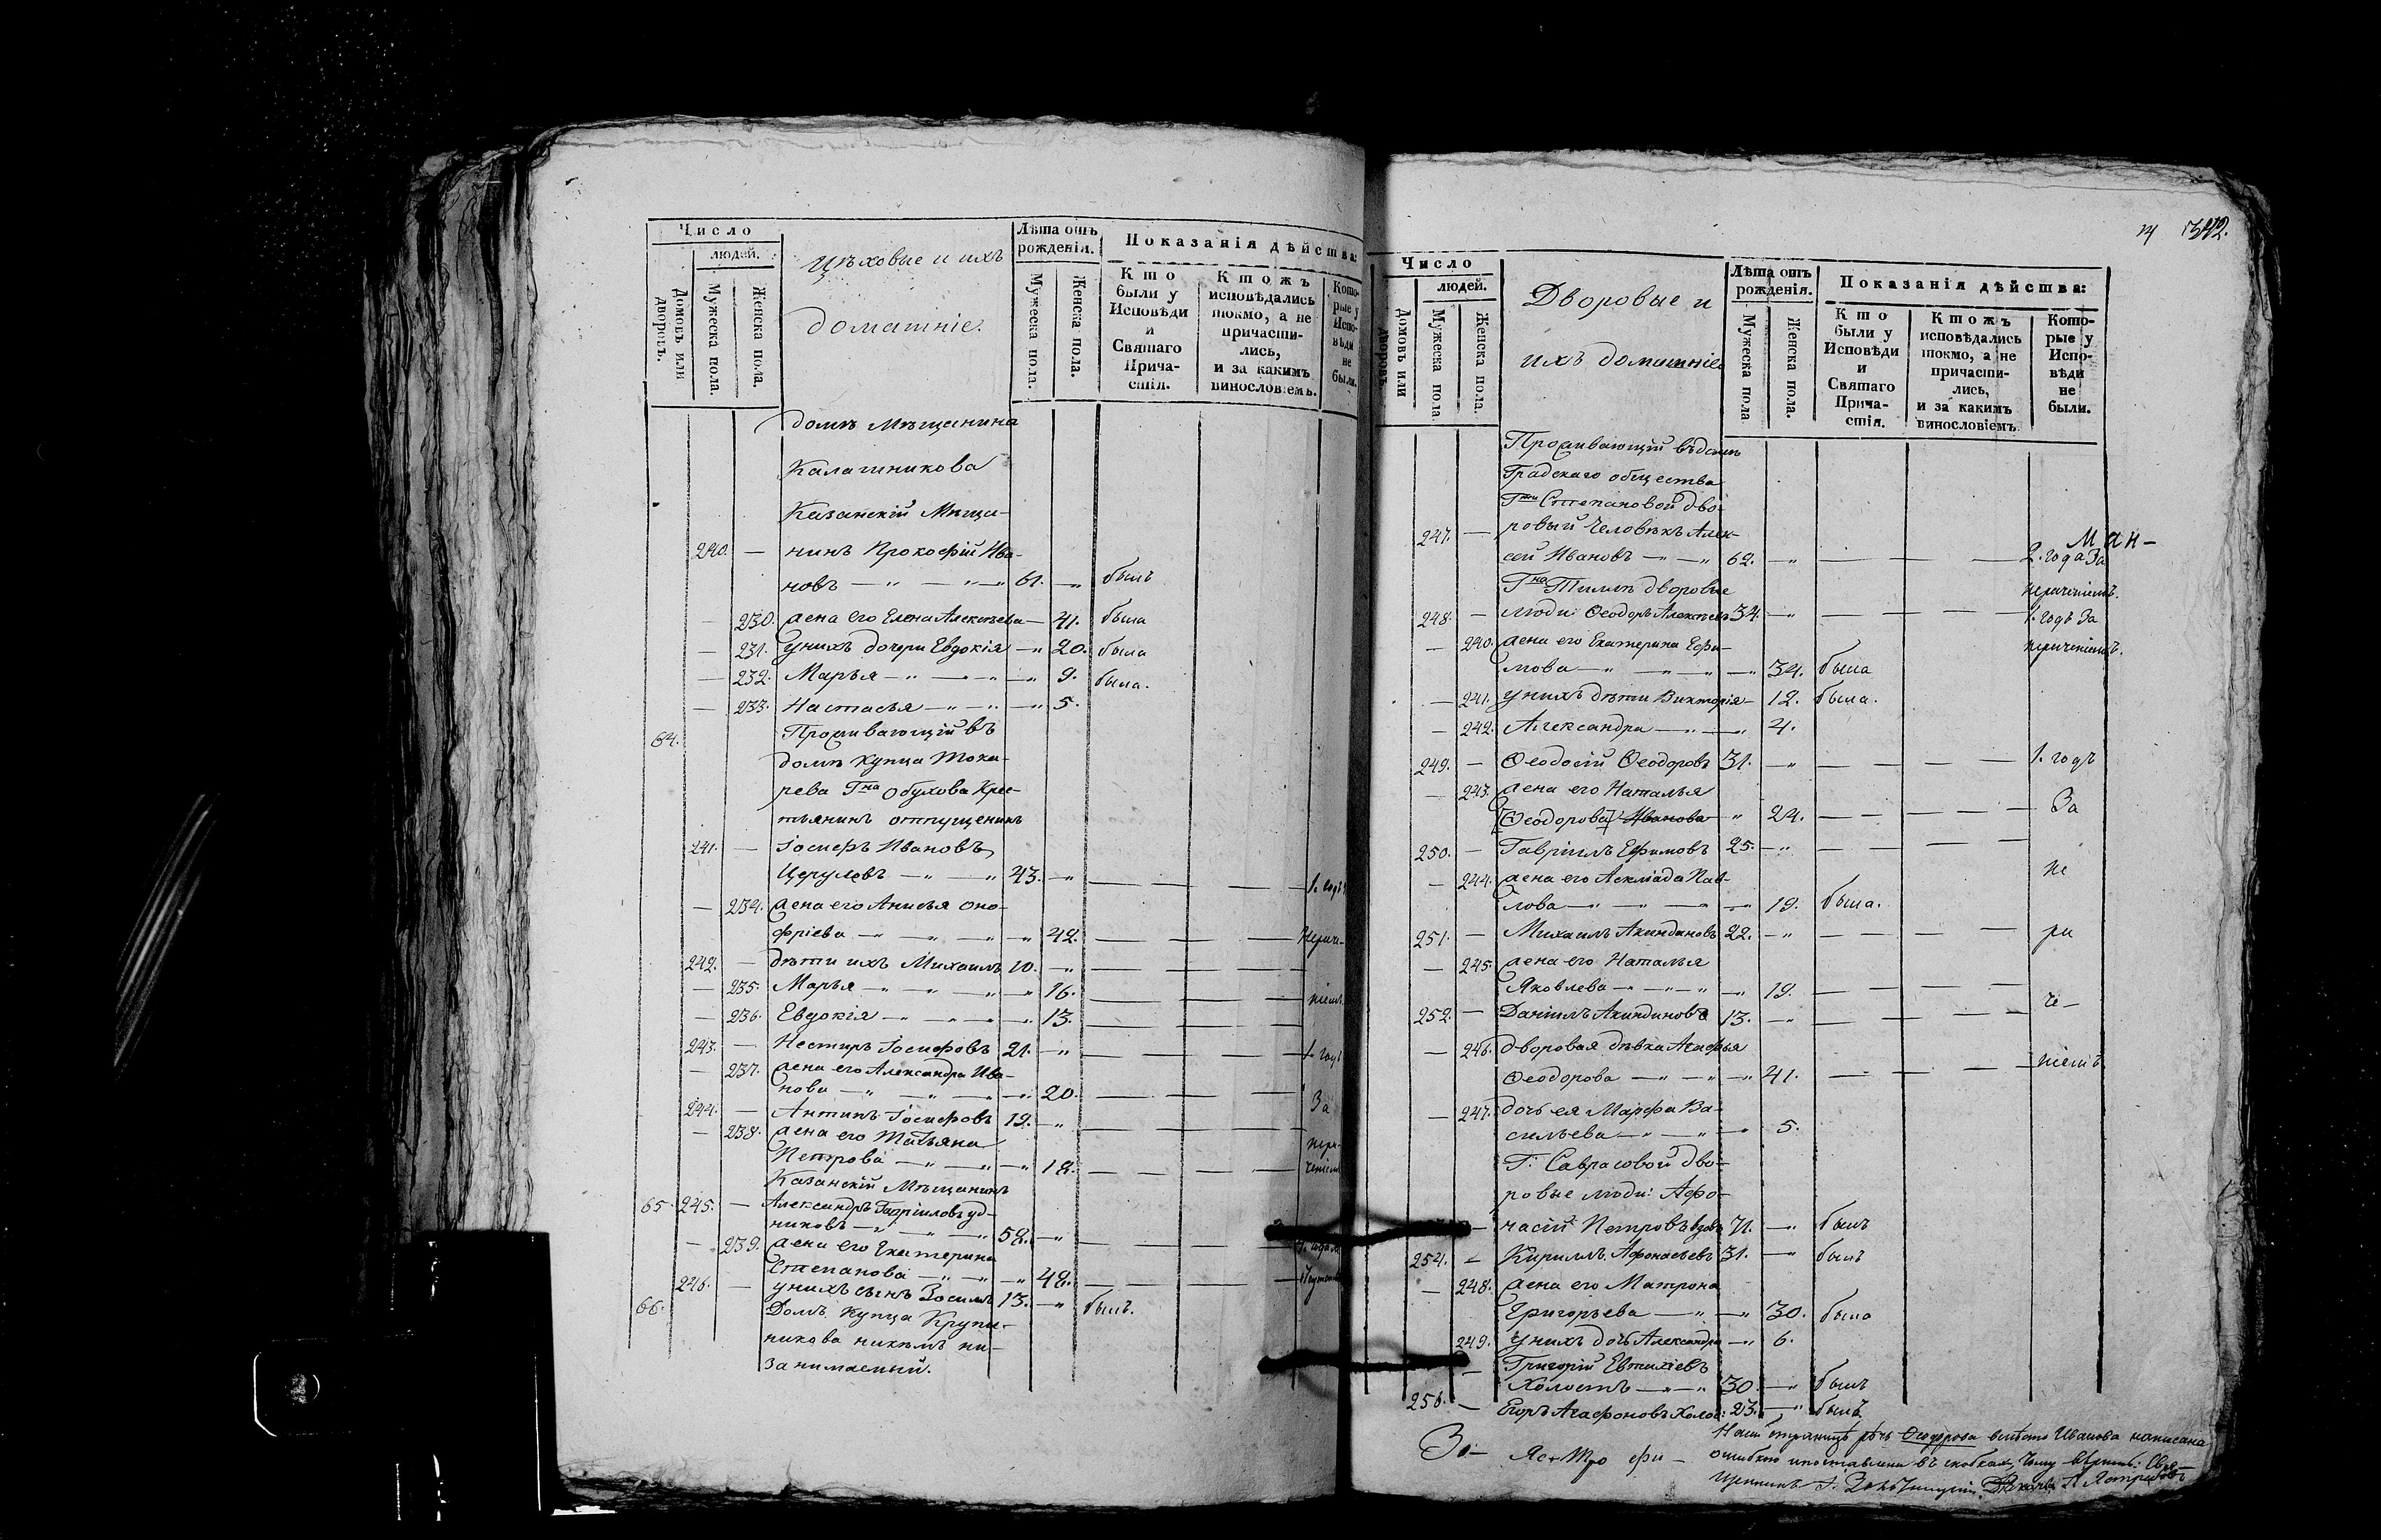 Число
людей.
Домовъ или дворовъ.
Мужеска пола.
Женска пола.
Цѣховые и ихъ
домашніе.
Лѣта отъ
рожденія.
Мужеска пола.
Женска пола.
Показанія дѣйства:
Кто были у Исповѣди и Святаго Прича-стія.
Ктожъ исповѣдались токмо, а не причасти-лись, и за какимъ винословіемъ.
Кото-рые у Испо-вѣди не были.
домъ Мѣщанина
Калашникова
Казанскій Мѣща-
240. — нинъ Прокофій Ива-
новъ — " — " — " 61. — " былъ
— 230. жена его Елена Алексѣева — 41. была
— 231. у нихъ дочери Евдокія — " 20. была
— 232. Марья — " — " — " 9. была.
— 233. Настасья — " — " — " 5.
64. Проживающій въ
домѣ купца Тока-
рева Гна Обухова Крес-
тьянинъ отпущеникъ
241. — Іосифъ Ивановъ
43. — " — — — 1. годъ
— 234. жена его Анисья Оно-
фріева — " — " — " 42. — — — Нераче-
242. — дѣти ихъ Михаилъ 10. — " — — —
— 235. Марья — " — " — " 16. — — — ніемъ
— 236. Евдокія — " — " — " 13. — — —
243. — Нестиръ Іосифовъ 21. — " — — — 1. годъ
— 237. жена его Александра Ива-
нова — " — " — " 20. — — — За
244. — Антипъ Іосифовъ 19. — " — — —
— 238. жена его Татьяна
Петрова — " — " — " 18. — — — нера-
ченіемъ
Казанскій Мѣщанинъ
65. 245. — Александръ Гавріиловъ
никовъ — " — " — " 58. — "
— 239. жена его Екатерина
Степанова — " — " — " 48. — — —
246. — у нихъ сынъ Зосима 13. — " былъ.
66. Домъ купца Крупе-
никова никѣмъ не-
занимаемый.
14 342.
Число
людей.
Домовъ или дворовъ
Мужеска пола
Женска пола.
Дворовые и
ихъ домашніе
Лѣта отъ
рожденія.
Мужеска пола
Женска пола.
Показанія дѣйства:
Кто были у Исповѣди и Святаго Прича-стія.
Ктожъ исповѣдались токмо, а не причасти-лись, и за какимъ винословіемъ
Кото-рые у Испо-вѣди не были.
Проживающій въ домѣ
Градскаго общества
Гжи Степановой дво-
247. — ровый человѣкъ Алек- Ман-
сей Ивановъ — " — " 62. — " — — — 2. года За
Гна Тиммъ дворовые нераченіемъ.
248. — люди Ѳеодоръ Алексѣевъ 34. — " — — — 1. годъ За
— 240. жена его Екатерина Ефи- нераченіемъ.
мова — " — " — " 34. была
— 241. у нихъ дѣти Викторія — 12. была.
— 242. Александра — " — " 4.
249. — Ѳеодосій Ѳеодоровъ 31. — " — — — 1. годъ
— 243. жена его Наталья
[Ѳеодорова] Иванова — " 24. — — — За
250. — Гавріилъ Ефимовъ 25. — " — — —
— 244. жена его Пав- не
лова — " — " — " 19. была.
251. — Михаилъ Акиндиновъ 22. — " — — — ра
— 245. жена его Наталья
Яковлева — " — " — " 19. — — — че-
252. — Даніилъ Акиндиновъ 13. — " — — —
— 246. дворовая дѣвка Агафья
Ѳеодорова — " — " — " 41. — — — ніемъ
— 247. дочь ея Марфа Ва-
сильева — " — " — " 5.
Г: Саврасовой дво-
ровые люди: Афо-
— насій Петровъ вдовъ 71. — " былъ
254. — Кириллъ Афонасьевъ 31. — " былъ
— 248. жена его Матрона
Григорьева — " — " 30. была
249. у нихъ дочь Александра — " 6.
— Григорій Евтихіевъ
Холостъ — " — " 30. — " былъ
256. — Егоръ Агафоновъ Холос: 23. — " былъ
За- Яст Тро фи-
На сей страницѣ рѣчь Ѳеодорова вмѣсто Иванова написана
ошибкою и поставлена въ скобкахъ,